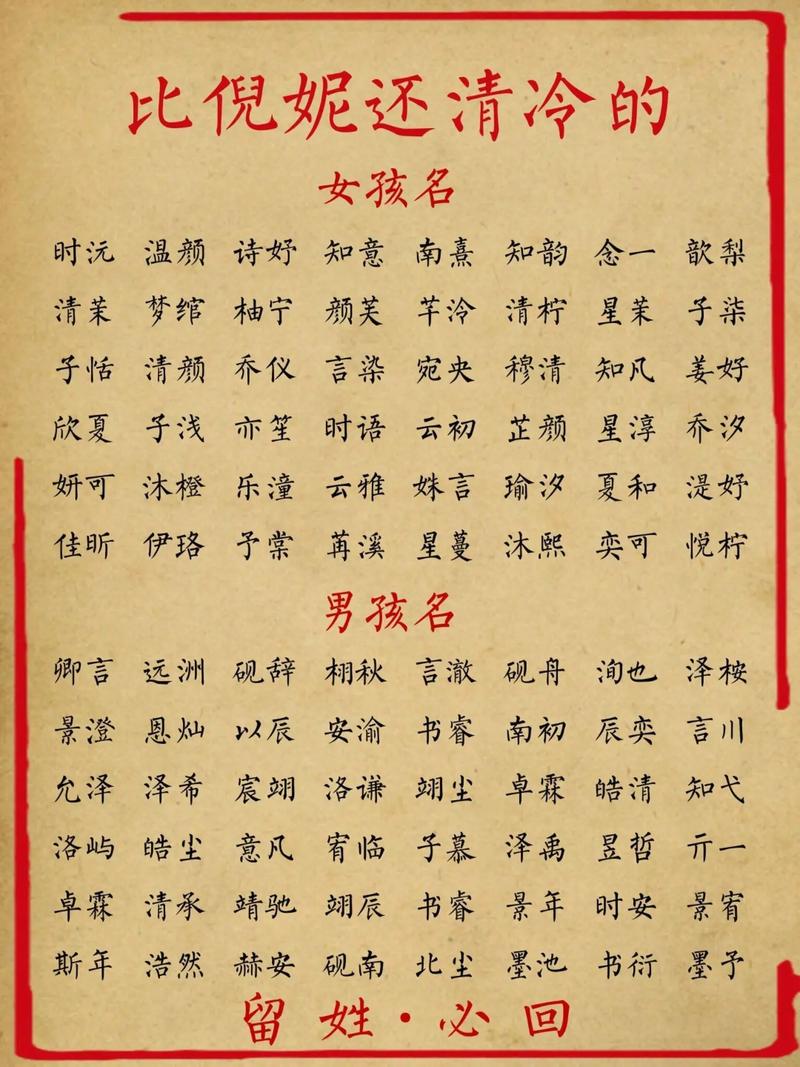 比倪妮还清冷的
女孩名
时沅 温颜 诗妤 知意 南熹 知韵 念一 歆梨
清茉 梦绾 柚宁 颜芙 芊泠 清柠 星茉 子柒
子恬 清颜 乔仪 言染 宛央 穆清 知凡 姜好
欣夏 子浅 亦笙 时语 云初 芷颜 星淳 乔汐
妍可 沐橙 乐潼 云雅 姝言 瑜汐 夏和 湜妤
佳昕 伊珞 予棠 苒溪 星蔓 沐熙 奕可 悦柠
男孩名
卿言 远洲 砚辞 栩秋 言澈 砚舟 洵也 泽桉
景澄 恩灿 以辰 安渝 书睿 南初 辰奕 言川
允泽 泽希 宸翊 洛谦 翊尘 卓霖 皓清 知弋
洛屿 皓尘 意凡 宥临 子慕 泽禹 昱哲 亓一
卓霖 清承 靖驰 翊辰 书睿 景年 时安 景宥
斯年 浩然 赫安 砚南 北尘 墨池 书衍 墨予
留姓·必回